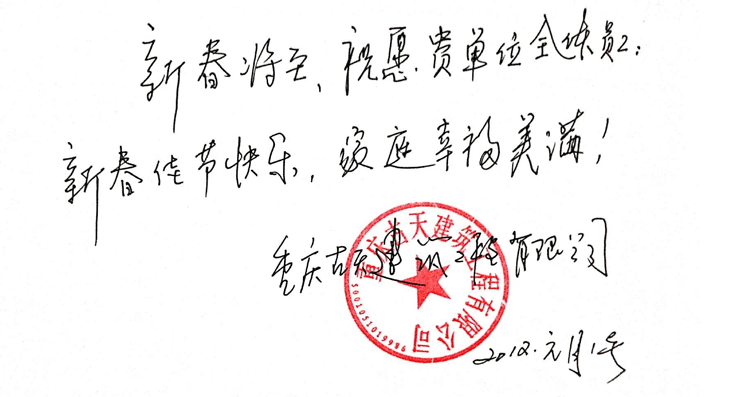 新春将至、祝愿贵单位全体员工：
新春佳节快乐，家庭幸福美满！
重庆吉天建筑工程有限公司
重庆吉天建筑工程有限公司
5001051019986
2012.元月1号